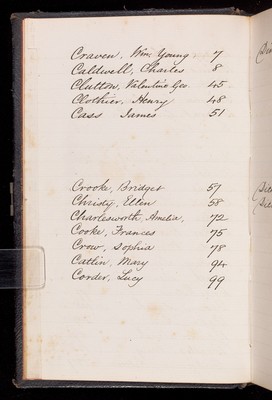 Craven, Wm. Young 7
Caldwell, Charles 8
Clutton, Valentine Geo. 45
Clothier, Henry 48
Cass James 51
Crooke, Bridget 57
Christy, Ellen 58
Charlesworth, Amelia, 72
Cooke, Frances 75
Crow, Sophia 78
Catlin, Mary 94
Corder, Lucy 99